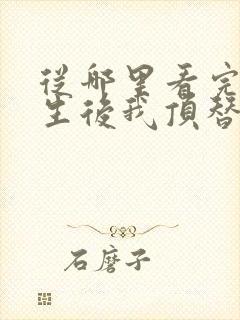 從哪里看完
生後我頂替
石磨子